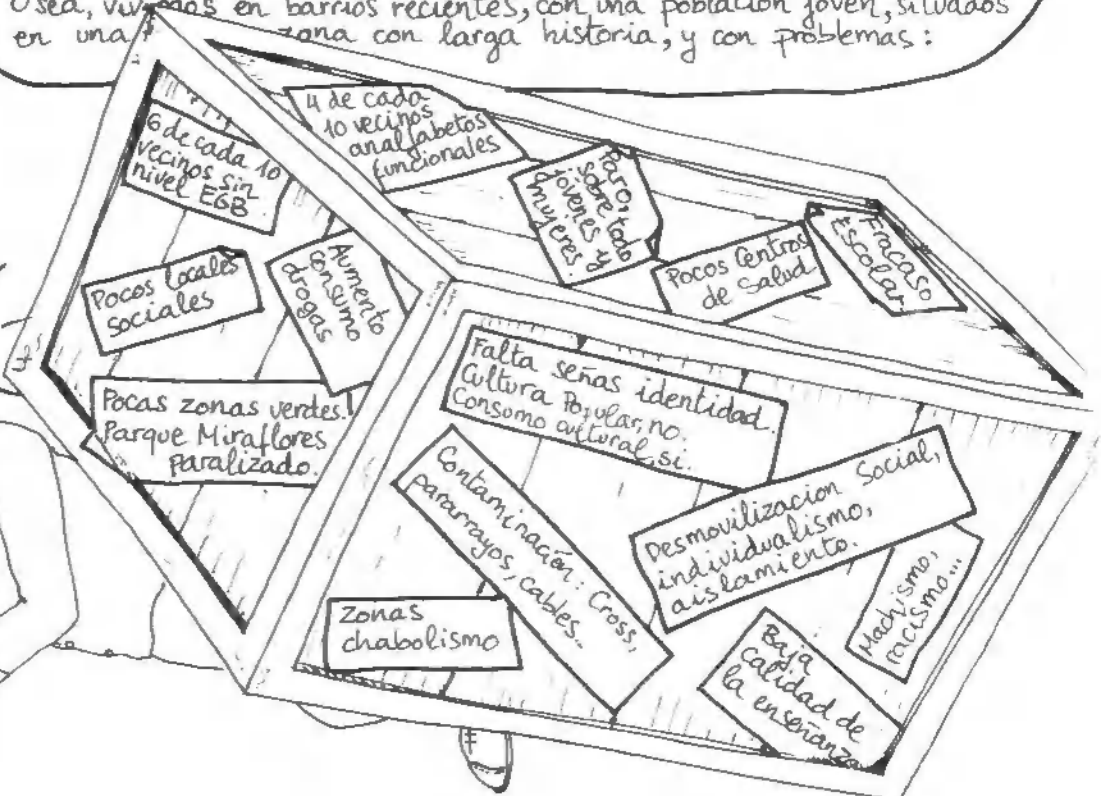 Osea, vivimos en barrios recientes, con una población joven, situados
en una zona con larga historia, y con problemas:
6 de cada 10
vecinos sin
nivel EGB
4 de cada
10 vecinos
analfabetos
funcionales
Paro,
sobre todo
jóvenes y
mujeres.
Pocos Centros
de Salud
Fracaso
Escolar.
Pocos locales
sociales
Aumento
consumo
drogas
Pocas zonas verdes.!
Parque Miraflores
paralizado.
Falta señas identidad.
Cultura Popular, no.
Consumo cultural, si.
Contaminación: Cross,
pararrayos, cables...
Desmovilizacion Social,
individualismo,
aislamiento.
Machismo,
racismo...
Zonas
chabolismo
Baja
calidad de
la enseñanza